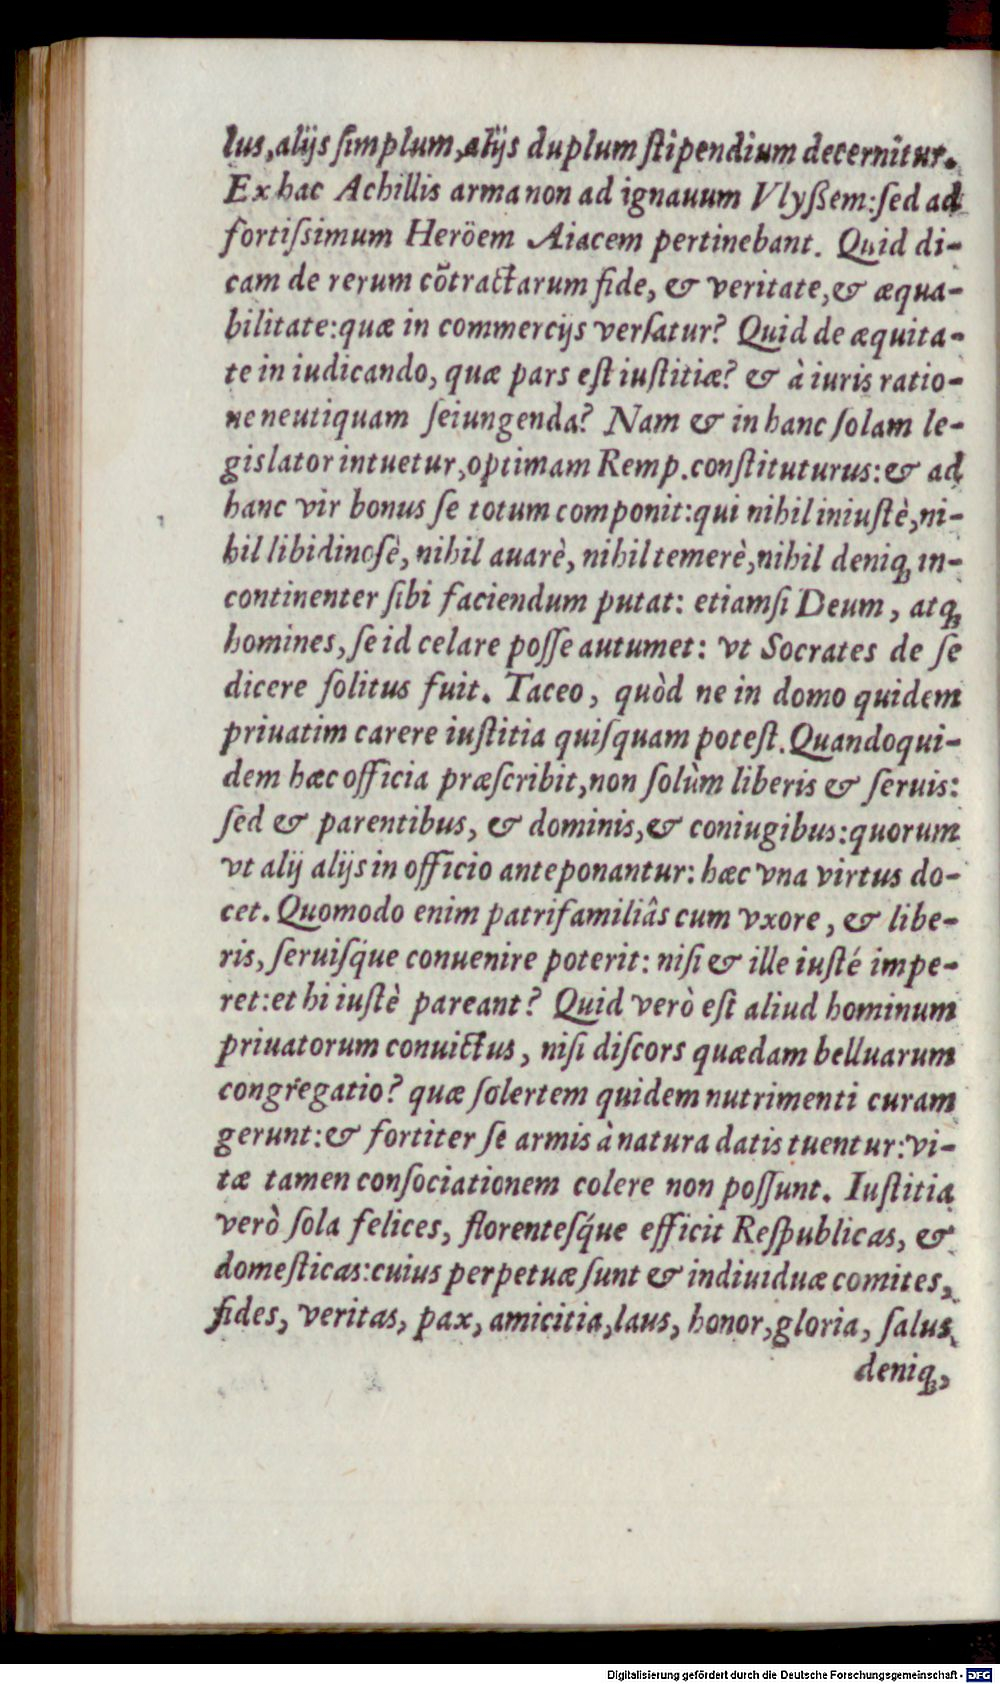 lus, alijs ſimplum, alijs duplum ſtipendium decernitur.
Ex hac Achillis arma non ad ignauum Vlyßem: ſed ad
fortiſsimum Heröem Aiacem pertinebant. Quid di-
cam de rerum cõtractarum fide, & veritate, & æqua-
bilitate: quæ in commercijs verſatur? Quid de æquita-
te in iudicando, quæ pars eſt iuſtitiæ? & à iuris ratio-
ne neutiquam ſeiungenda? Nam & in hanc ſolam le-
gislator intuetur, optimam Remp. conſtituturus: & ad
hanc vir bonus ſe totum componit: qui nihil iniuſtè, ni-
hil libidinoſè, nihil auarè, nihil temerè, nihil deniq; in-
continenter ſibi faciendum putat: etiamſi Deum, atq;
homines, ſe id celare poſſe autumet: vt Socrates de ſe
dicere ſolitus fuit. Taceo, quòd ne in domo quidem
priuatim carere iuſtitia quiſquam poteſt. Quandoqui-
dem hæc officia præſcribit, non ſolùm liberis & ſeruis:
ſed & parentibus, & dominis, & coniugibus: quorum
vt alij alijs in officio anteponantur: hæc vna virtus do-
cet. Quomodo enim patrifamiliâs cum vxore, & libe-
ris, ſeruiſq́ue conuenire poterit: niſi & ille iuſté impe-
ret: et hi iuſtè pareant? Quid verò eſt aliud hominum
priuatorum conuictus, niſi diſcors quædam belluarum
congregatio? quæ ſolertem quidem nutrimenti curam
gerunt: & fortiter ſe armis à natura datis tuentur: vi-
tæ tamen conſociationem colere non poſſunt. Iuſtitia
verò ſola felices, florenteſq́ue efficit Reſpublicas, &
domeſticas: cuius perpetuæ ſunt & indiuiduæ comites,
fides, veritas, pax, amicitia, laus, honor, gloria, ſalus
deniq;,
Digitalisierung gefördert durch die Deutsche Forschungsgemeinschaft - DFG